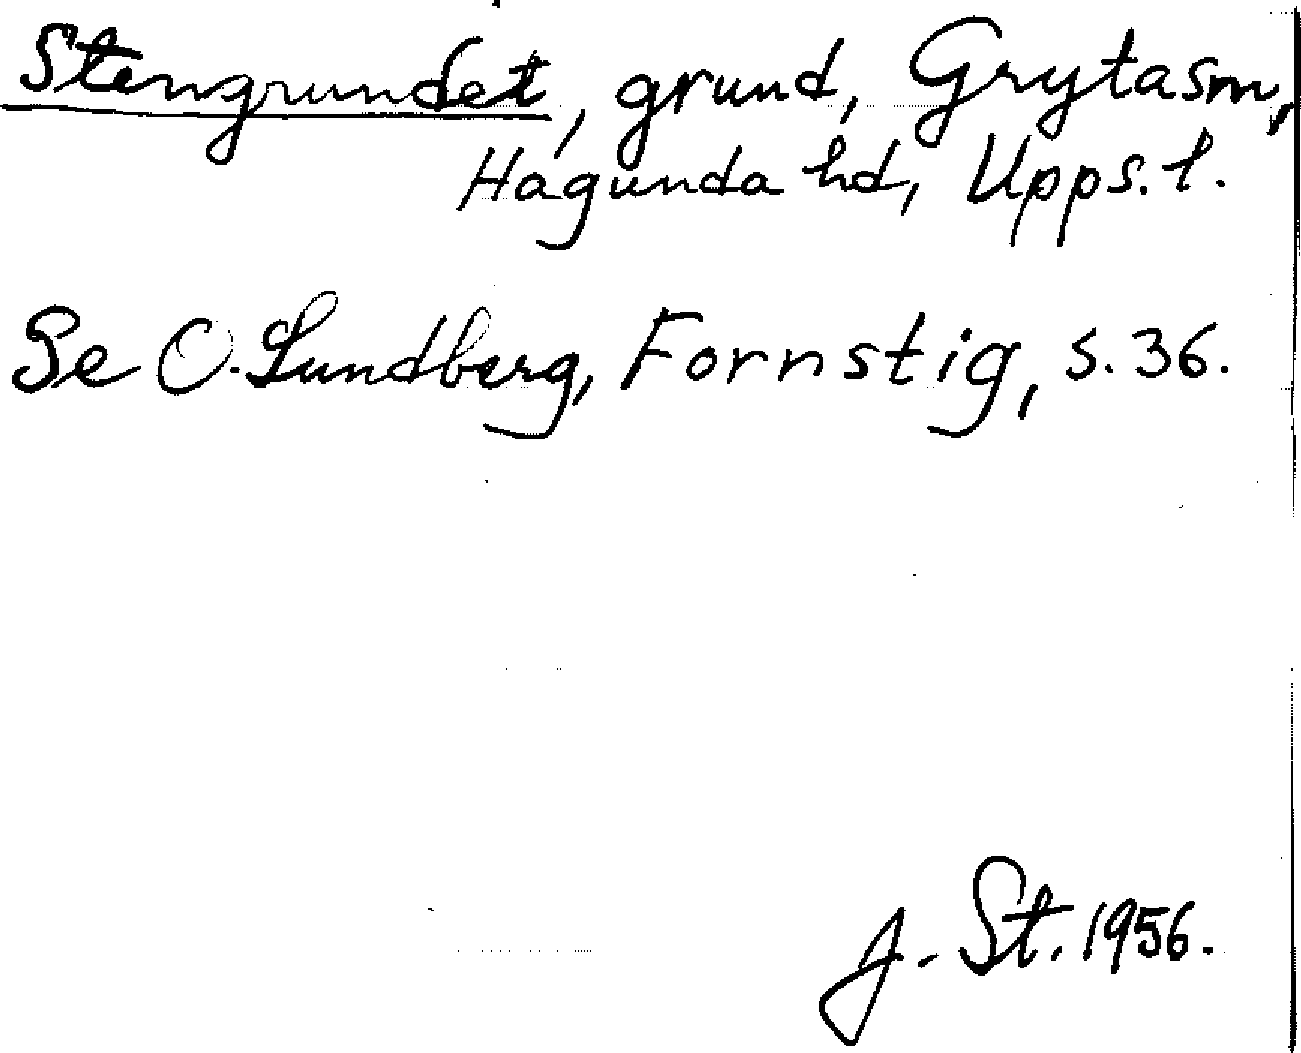 Stengrundet, grund, Grytasm,
Hagunda hd, Upps. l.
Se O. Lundberg, Fornstig, s. 36.
J. St. 1956.